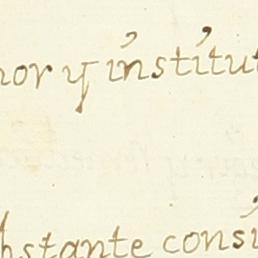 nor y institut
bstante consi